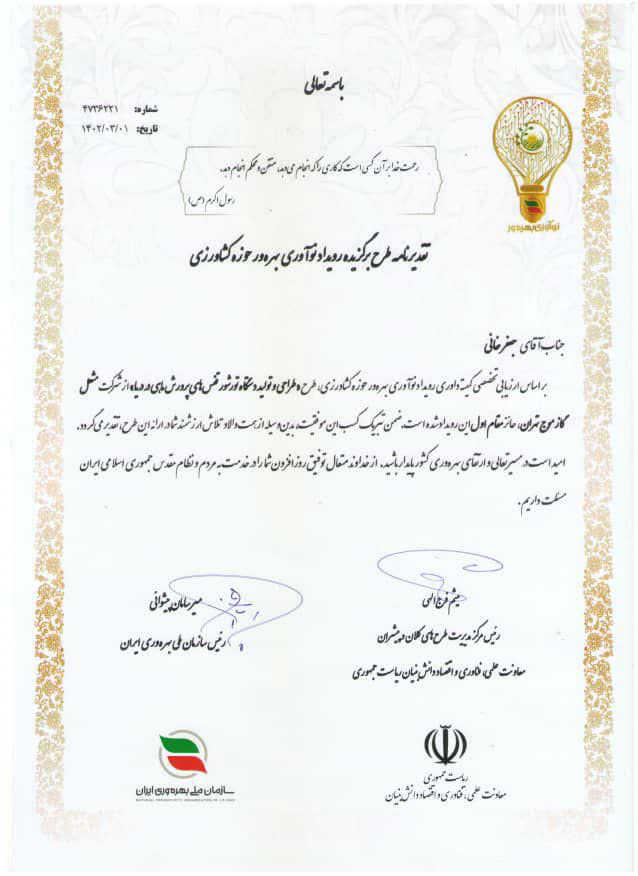 باسمه تعالی
شماره: ۴۷۳۶۲۲۱
تاریخ: ۱۴۰۲/۰۳/۰۱
رحمت خدا بر آن کسی است که کاری را که انجام می‌دهد، متقن و محکم انجام دهد.
رسول اکرم (ص)
نوآوری بهره‌ور
تقدیرنامه طرح برگزیده رویداد نوآوری بهره‌ور حوزه کشاورزی
جناب آقای جعفر خانی
بر اساس ارزیابی تخصصی کمیته داوری رویداد نوآوری بهره‌ور حوزه کشاورزی، طرح «طراحی و تولید دستگاه تورشور قفس‌های پرورش ماهی در دریا» از شرکت مشعل
گاز موج تهران، حائز مقام اول این رویداد شده است. ضمن تبریک کسب این موفقیت، بدین وسیله از همت والا و تلاش ارزشمند شما در ارائه این طرح، تقدیر می‌گردد.
امید است در مسیر تعالی و ارتقای بهره‌وری کشور پایدار باشید. از خداوند متعال توفیق روزافزون شما را در خدمت به مردم و نظام مقدس جمهوری اسلامی ایران
مسئلت داریم.
میثم فرج الهی
رئیس مرکز مدیریت طرح‌های کلان و پیشران
معاونت علمی، فناوری و اقتصاد دانش بنیان ریاست جمهوری
میرسامان پیشوائی
رئیس سازمان ملی بهره‌وری ایران
ریاست جمهوری
معاونت علمی، فناوری و اقتصاد دانش بنیان
سازمان ملی بهره‌وری ایران
NATIONAL PRODUCTIVITY ORGANIZATION OF I.R.IRAN